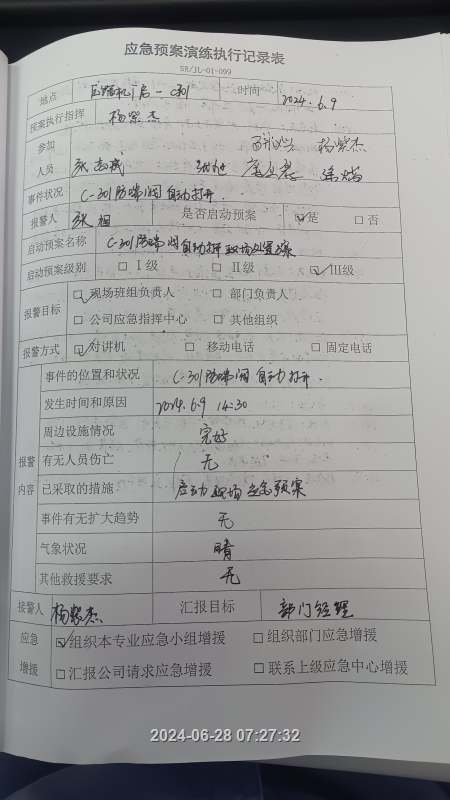 应急预案演练执行记录表
SR/JL-01-099
地点 压缩机厂房-C301 时间 2024.6.9
预案执行指挥 杨紫杰
参加 杨紫杰
人员
事件状况 C-301防喘阀自动打开.
报警人 张 是否启动预案 ☑是 □否
启动预案名称 C-301防喘阀自动打开现场处置方案
启动预案级别 □Ⅰ级 □Ⅱ级 ☑Ⅲ级
报警目标 ☑现场班组负责人 □部门负责人
□公司应急指挥中心 □其他组织
报警方式 ☑对讲机 □移动电话 □固定电话
报警内容
事件的位置和状况 C-301防喘阀自动打开.
发生时间和原因 2024.6.9 14:30
周边设施情况 完好
有无人员伤亡 无
已采取的措施 启动现场应急预案
事件有无扩大趋势 无
气象状况 晴
其他救援要求 无
接警人 杨紫杰 汇报目标 部门经理
应急增援
☑组织本专业应急小组增援 □组织部门应急增援
□汇报公司请求应急增援 □联系上级应急中心增援
2024-06-28 07:27:32